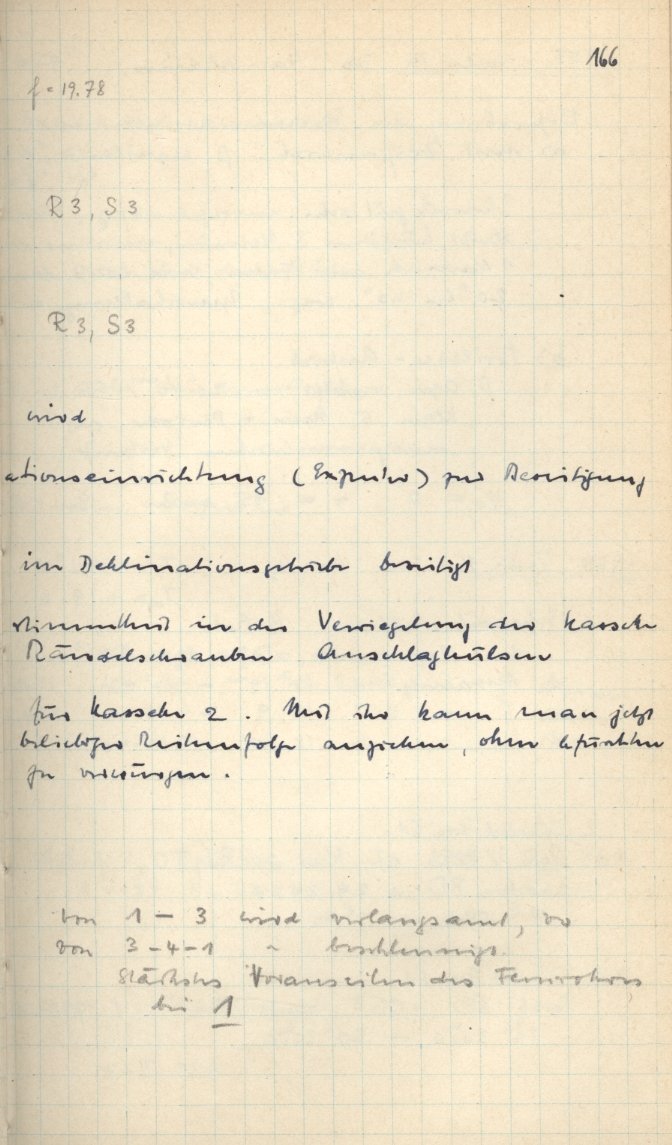 166
f = 19.78
R3, S3
R3, S3
wird
ationseinrichtung (Expulso) zur Beseitigung
im Deklinationsgetriebe beseitigt
stimmtheit in der Verriegelung der Kassette
Rändelschrauben Anschlaghülsen
für Kassette 2. Mit ihr kann man jetzt
beliebiger Reihenfolge anziehen, ohne
zu
von 1 – 3 wird verlangsamt,
von 3–4–1 " beschleunigt.
Stärkstes Vorauseilen des Fernrohres
bei 1